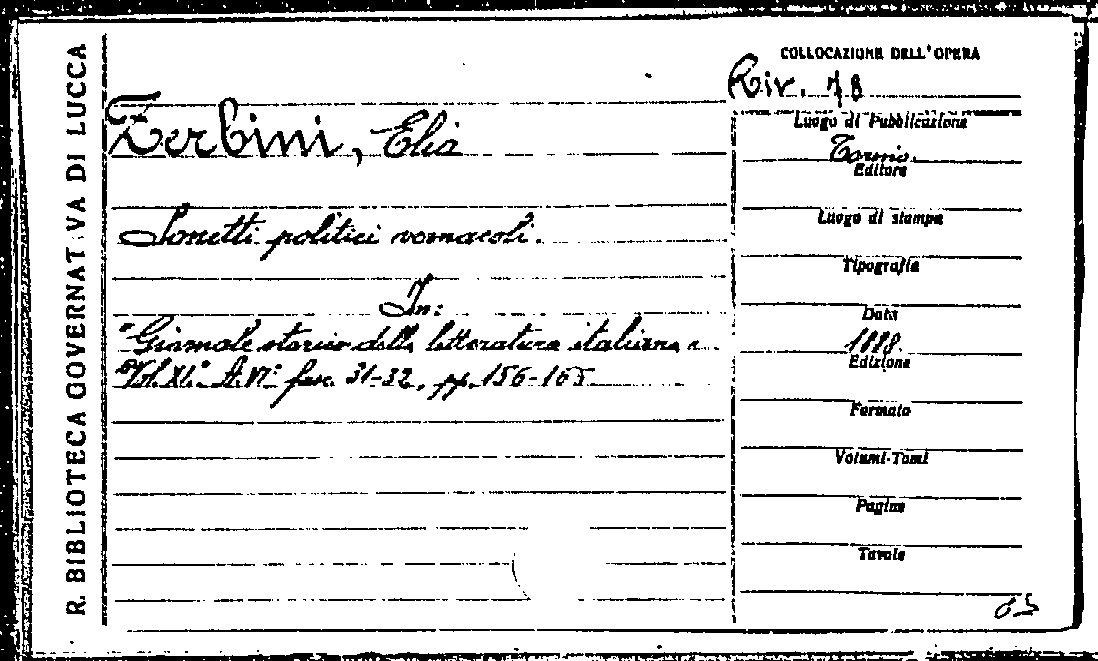 R. BIBLIOTECA GOVERNATIVA DI LUCCA
COLLOCAZIONE DELL'OPERA
Riv. 78
Zerbini, Elia
Sonetti politici vernacoli.
In:
"Giornale storico della letteratura italiana"
Vol. XI.° A. VI° fasc. 31-32, pp. 156-165
Luogo di Pubblicazione
Torino.
Editore
Luogo di stampa
Tipografia
Data
1888.
Edizione
Formato
Volumi-Tomi
Pagine
Tavole